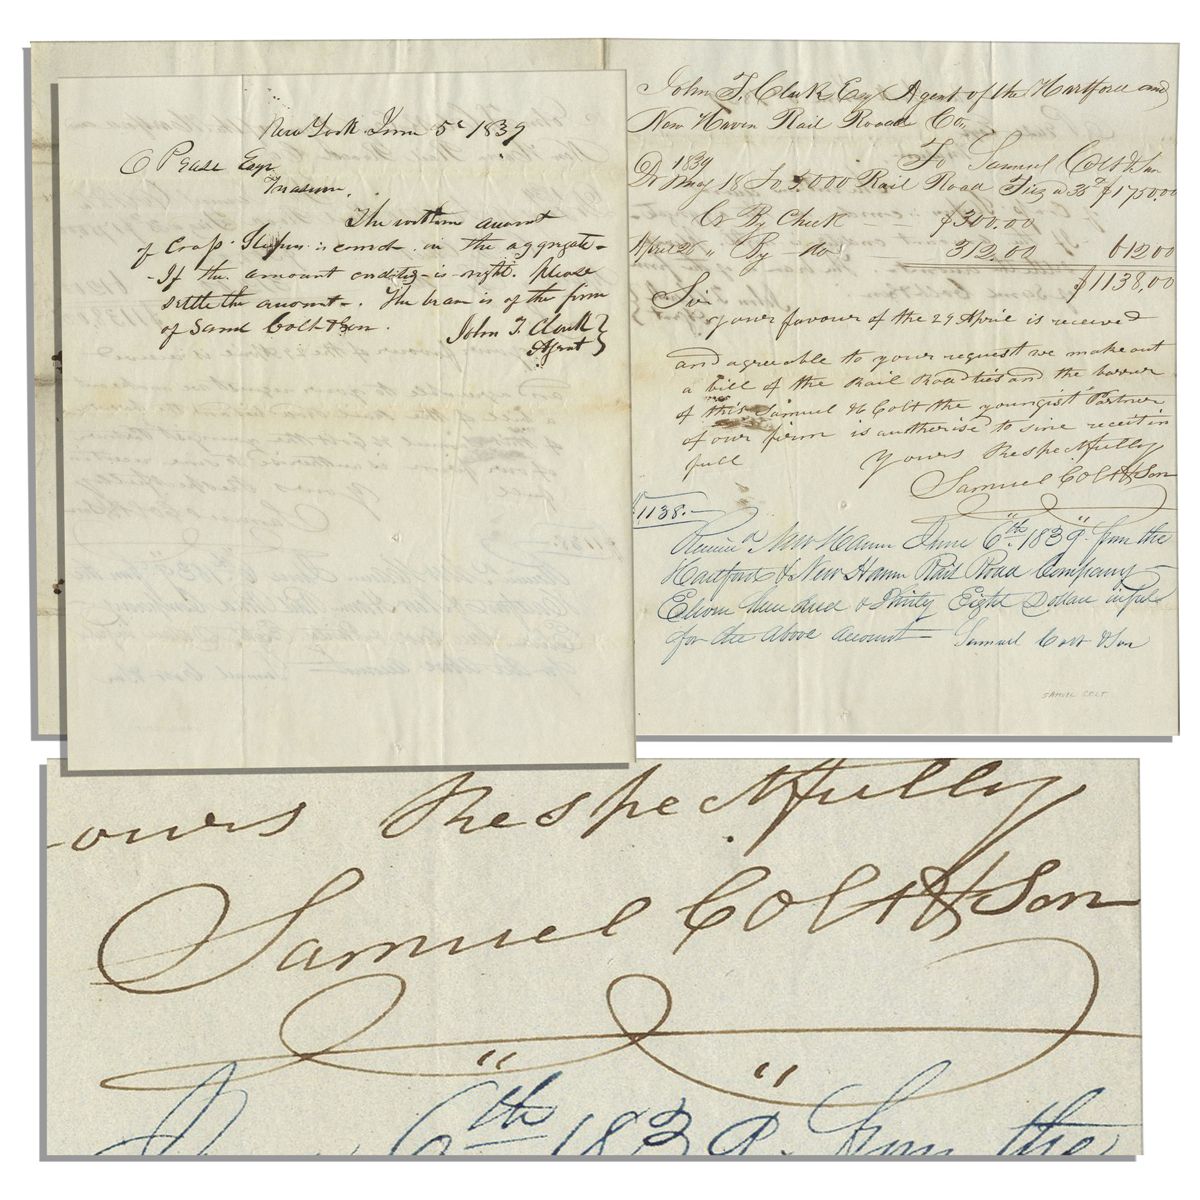 New York June 5th 1839
O Pease Esqr
Treasurer.
The within amount
of Cross Sleepers is correct in the aggregate
If the amount credited is right. Please
settle the amount. The bearer is of the firm
of Saml Colt & Son.
John T. Clark
Agent
John T. Clark Esq Agent of the Hartford and
New Haven Rail Road Co.
To Samuel Colt & Son
1839
Dr May 18 To 5.000 Rail Road Tiez a 35 $1750.00
Cr By Check $300.00
April 26 " By do 312.00 612 00
$1138,00
Sir
your favour of the 29 April is received
and agreeable to your request we make out
a bill of the Rail Road ties and the bearer
of this Samuel H Colt the youngist Partner
of our firm is authorise to sine receit in
full
Yours Respectfully
Samuel Colt & Son
$1138.-
Receivd New Haven June 6th 1839. from the
Hartford & New Haven Rail Road Company
Eleven Hundred & Thirty Eight Dollars in full
for the above account Samuel Colt & Son
SAMUEL COLT
ours Respectfully
Samuel Colt & Son
6th 1839. from the